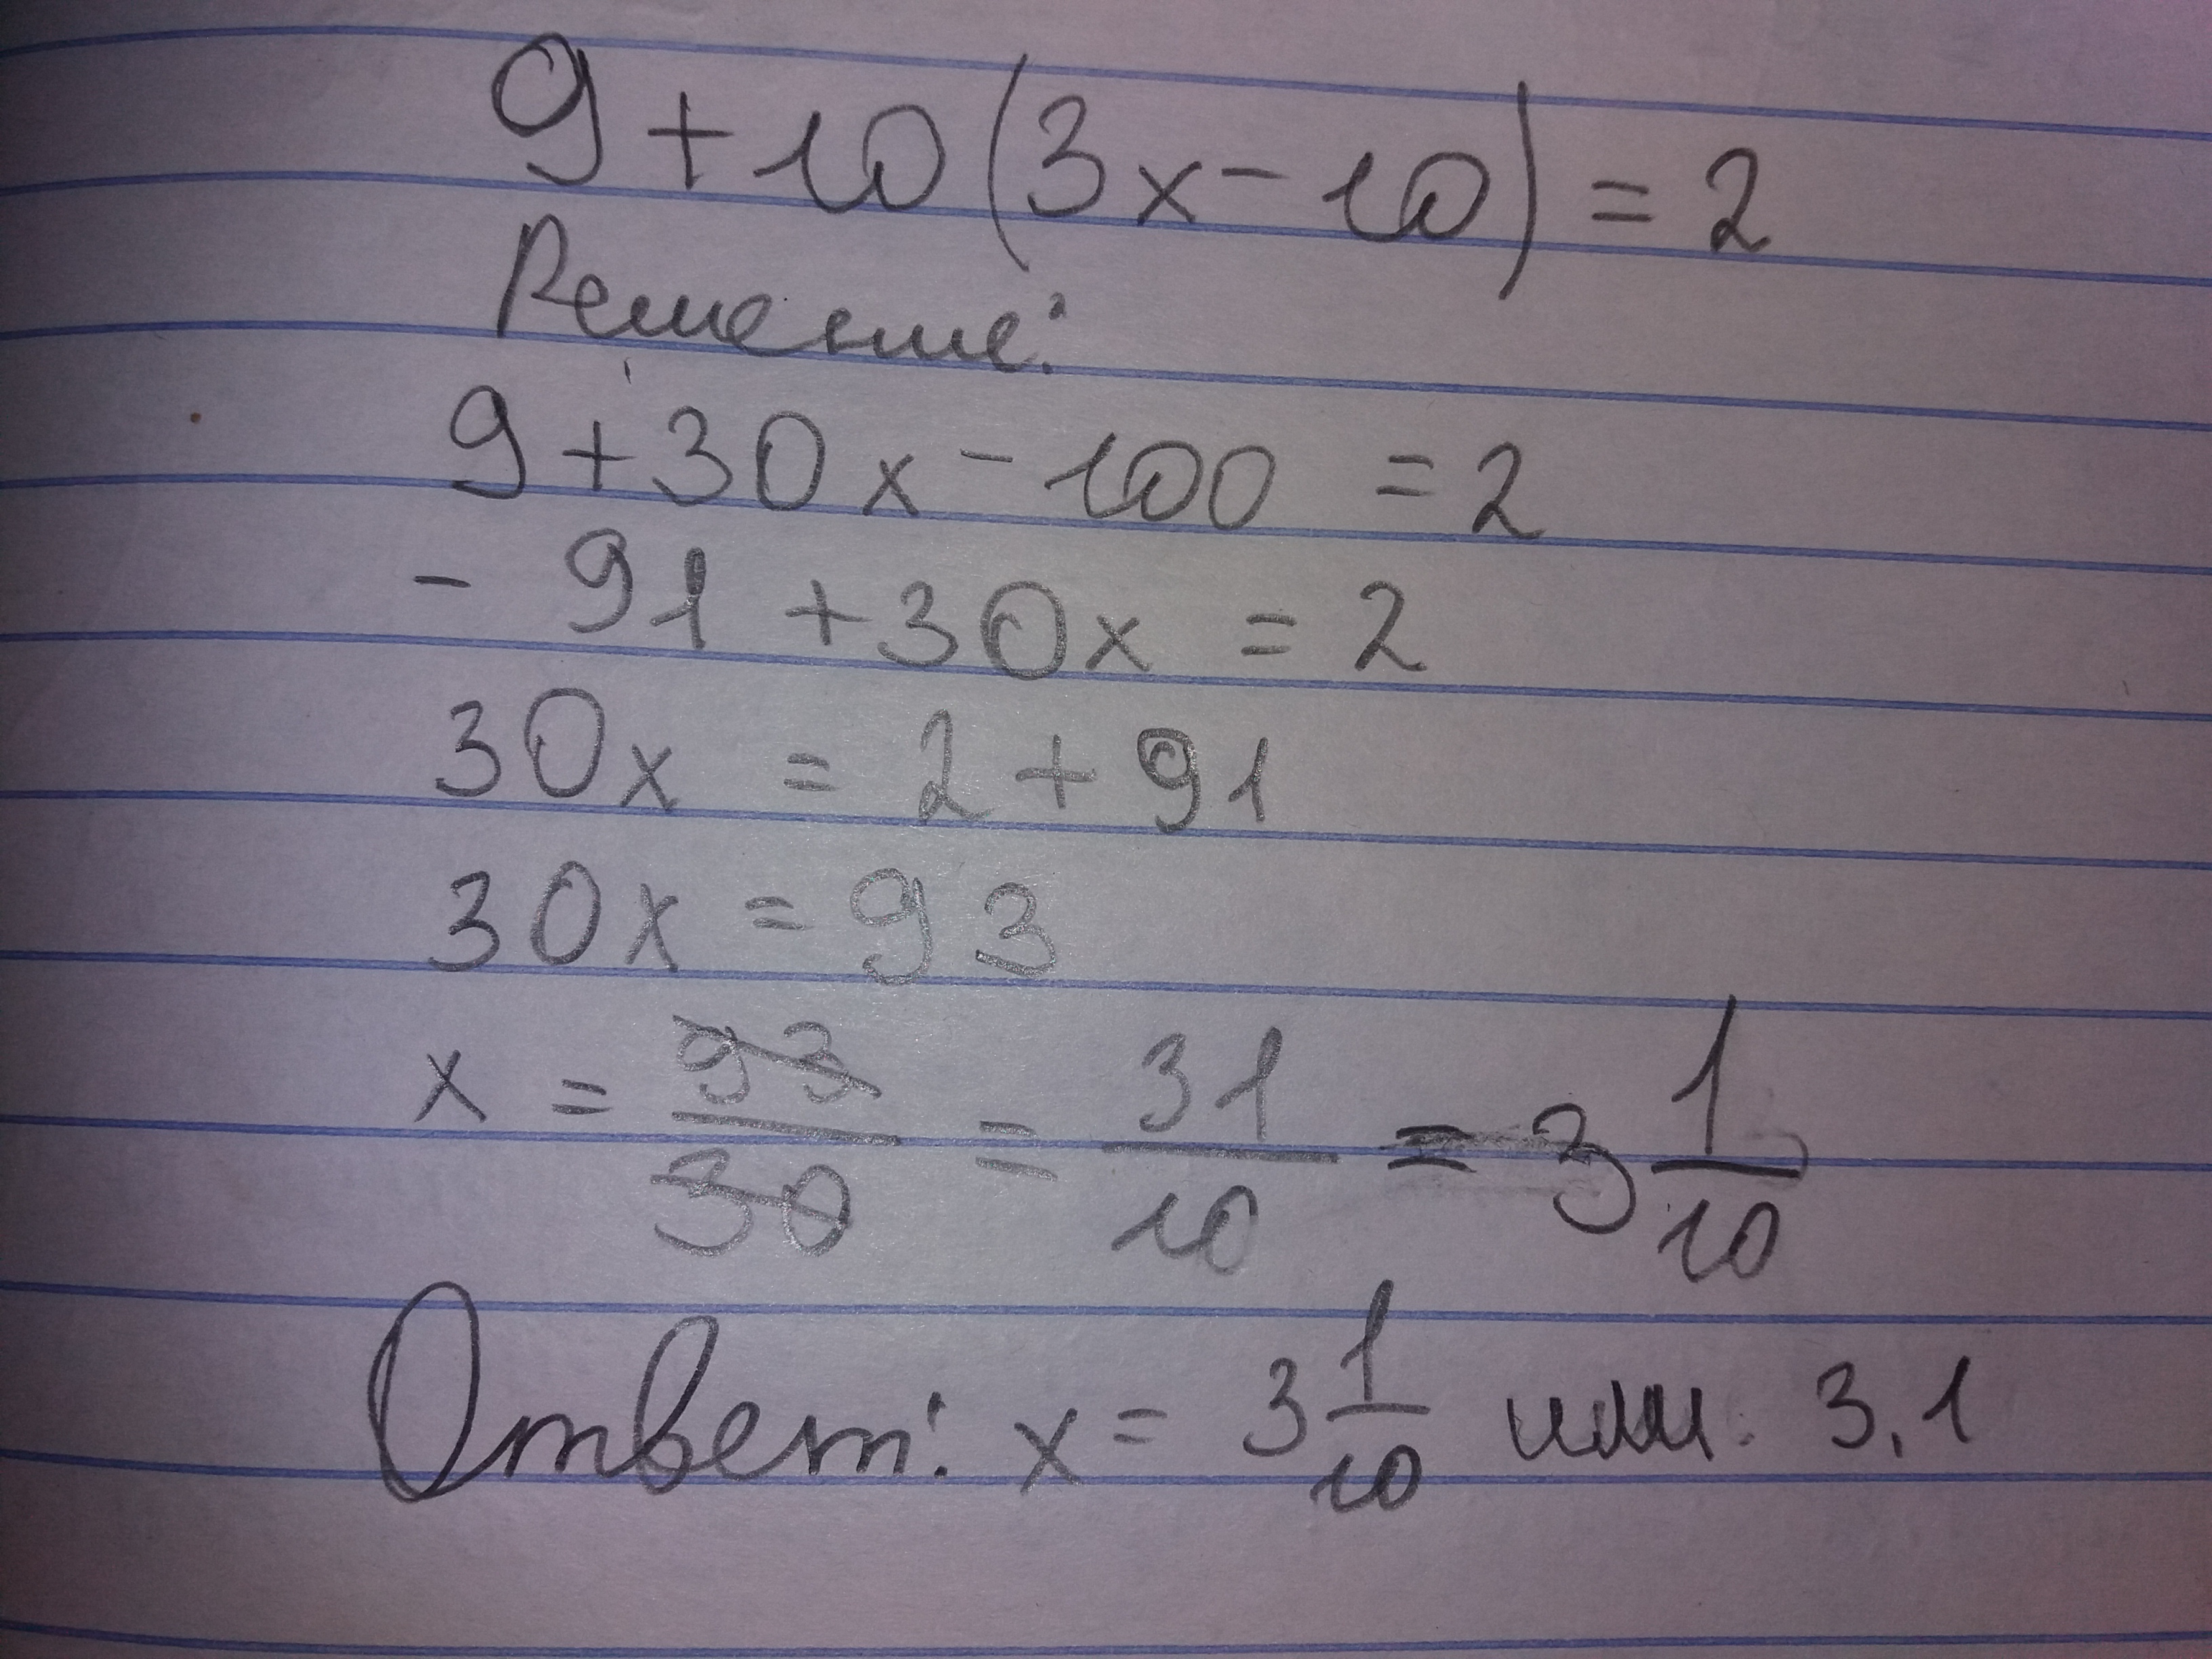 9 + 10 (3x - 10) = 2
Решение:
9 + 30x - 100 = 2
- 91 + 30x = 2
30x = 2 + 91
30x = 93
x = 93/30 = 31/10 = 3 1/10
Ответ: x = 3 1/10 или: 3,1